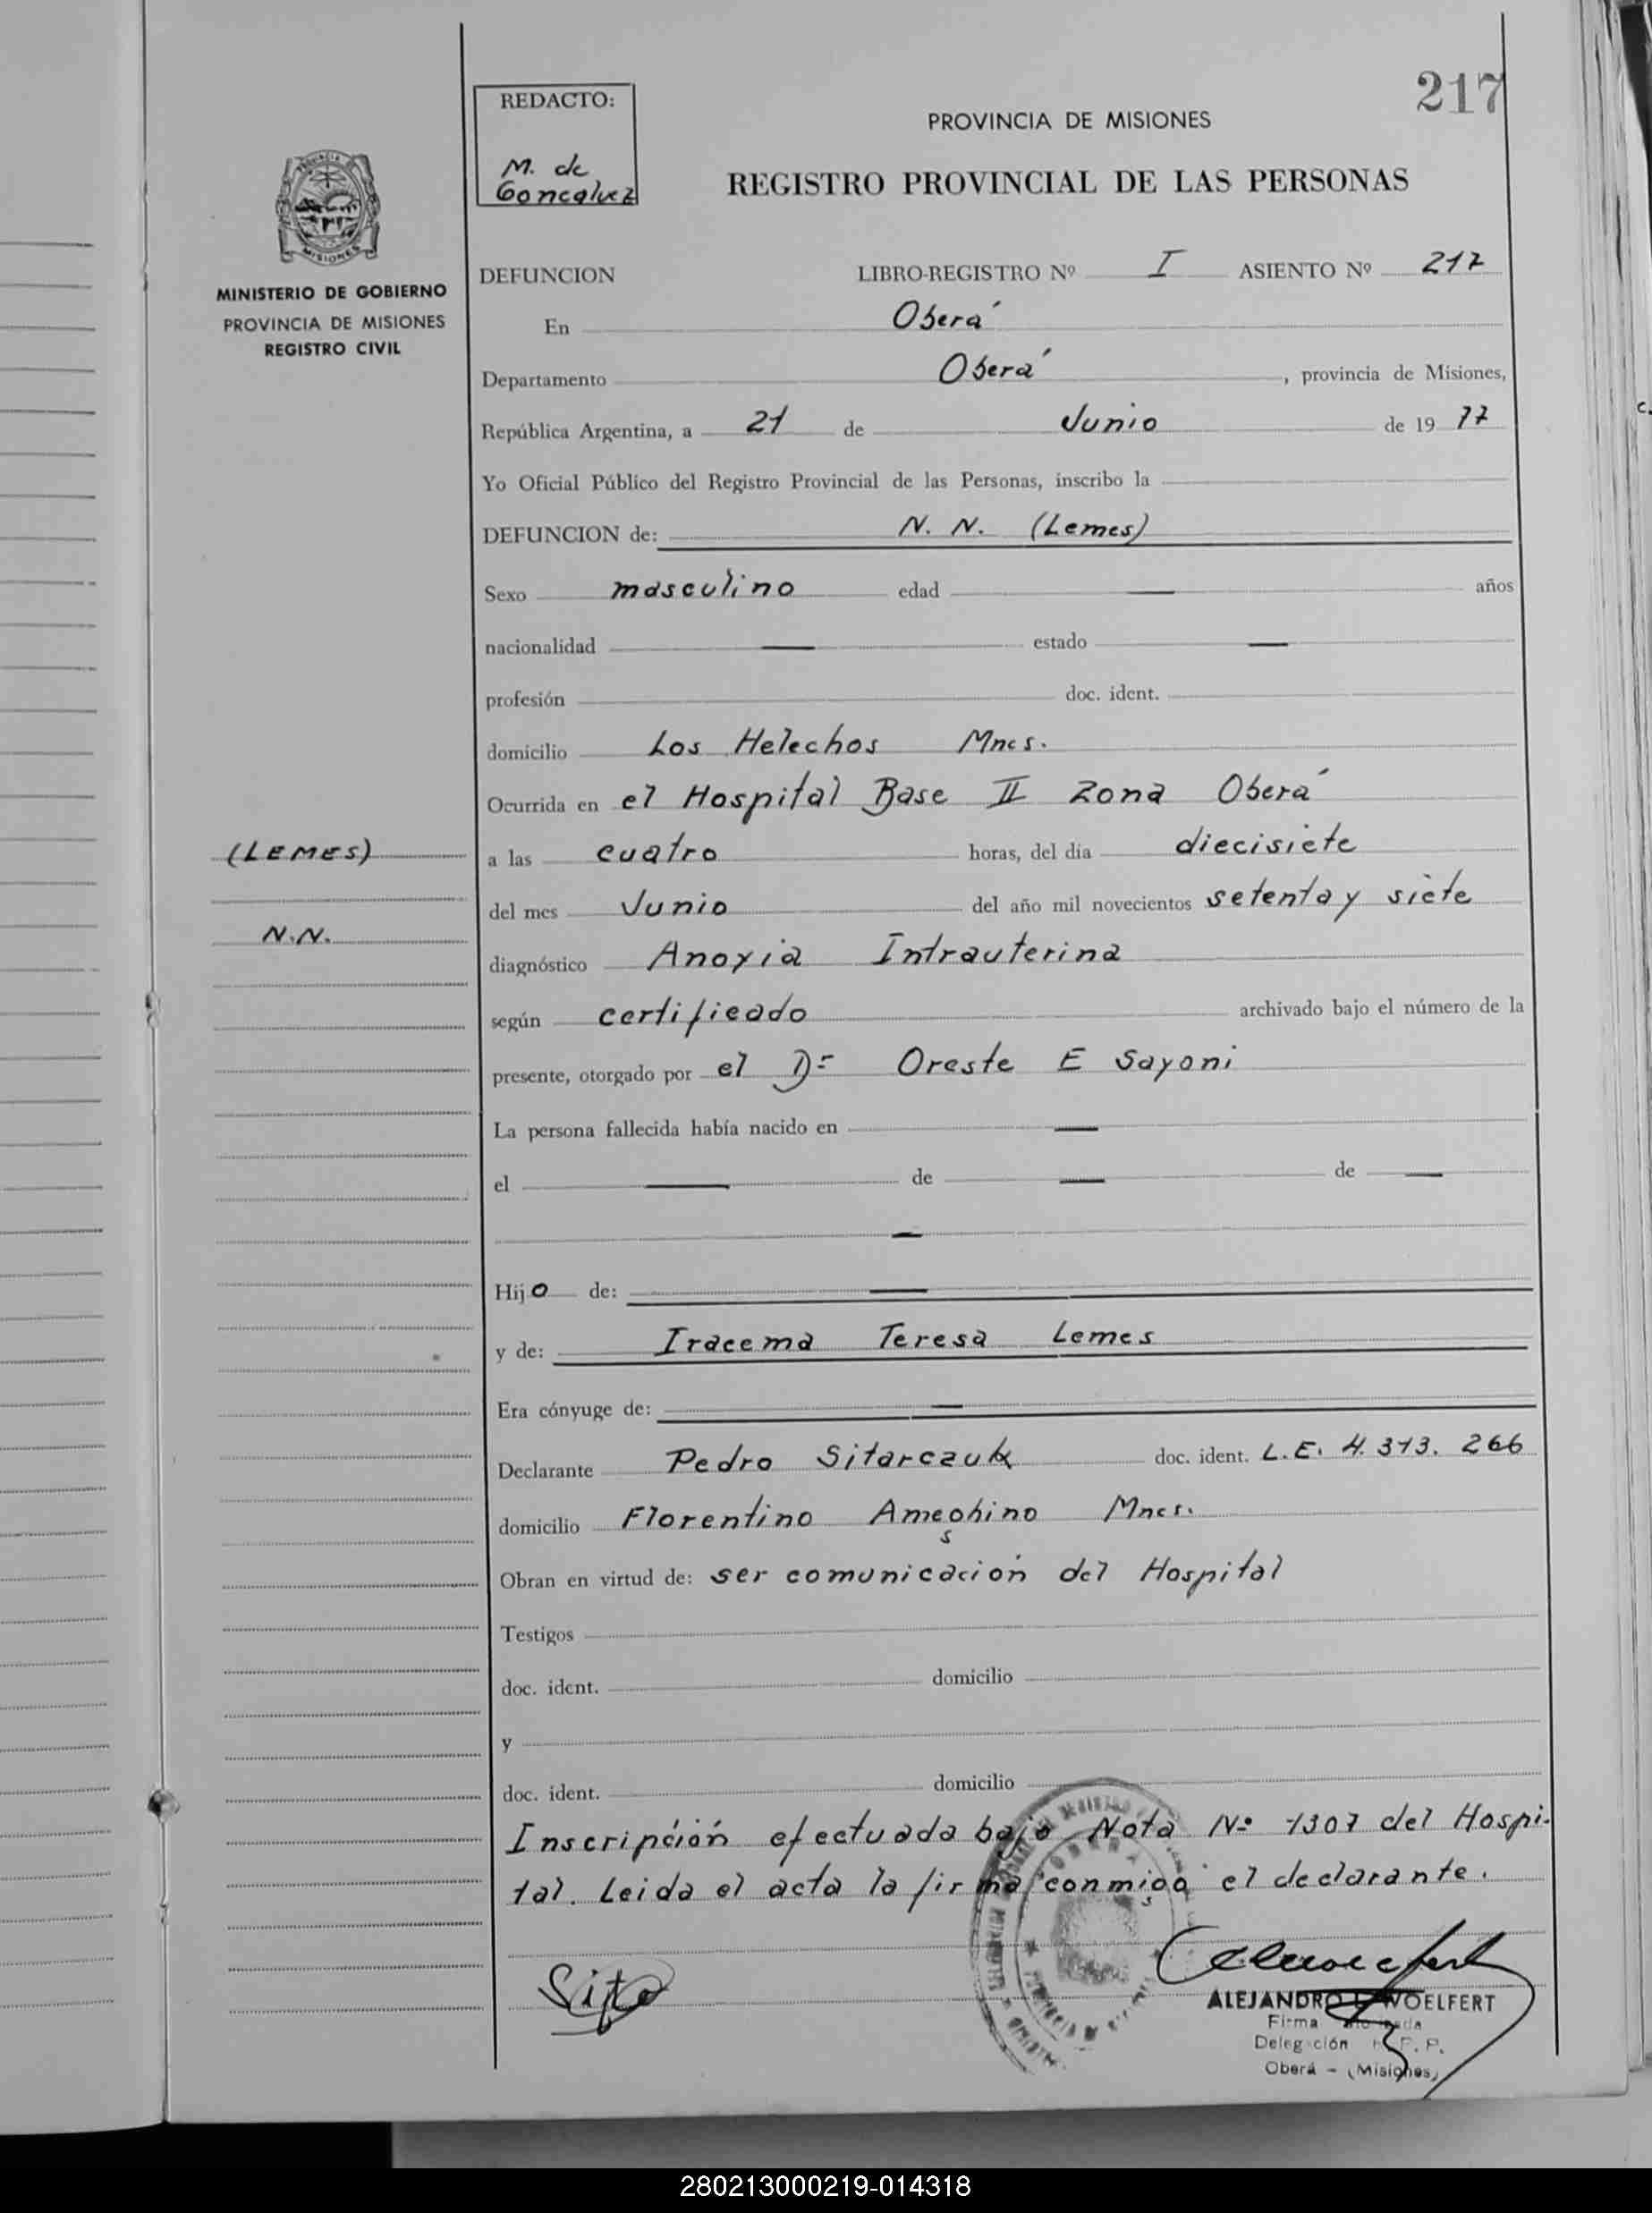 217
REDACTO:
M. de
Goncalvez
PROVINCIA DE MISIONES
REGISTRO PROVINCIAL DE LAS PERSONAS
MINISTERIO DE GOBIERNO
PROVINCIA DE MISIONES
REGISTRO CIVIL
DEFUNCION LIBRO-REGISTRO Nº I ASIENTO Nº 217
En Oberá
Departamento Oberá, provincia de Misiones,
República Argentina, a 21 de Junio de 19 77
Yo Oficial Público del Registro Provincial de las Personas, inscribo la
DEFUNCION de: N. N. (Lemes)
Sexo masculino edad — años
nacionalidad — estado —
profesión doc. ident.
domicilio Los Helechos Mnes.
Ocurrida en el Hospital Base II Zona Oberá
(LEMES)
N.N.
a las cuatro horas, del día diecisiete
del mes Junio del año mil novecientos setenta y siete
diagnóstico Anoxia Intrauterina
según certificado archivado bajo el número de la
presente, otorgado por el Dr Oreste E Sayoni
La persona fallecida había nacido en —
el — de — de —
—
Hijo de: —
y de: Iracema Teresa Lemes
Era cónyuge de: —
Declarante Pedro Sitarczuk doc. ident. L.E. 4.313.266
domicilio Florentino Ameghino Mnes.
Obran en virtud de: ser comunicación del Hospital
Testigos
doc. ident. domicilio
y
doc. ident. domicilio
Inscripción efectuada bajo Nota Nº 1307 del Hospi-
tal. Leida el acta la firma conmigo el declarante.
ALEJANDRO WOELFERT
Firma
Oberá - (Misiones)
280213000219-014318